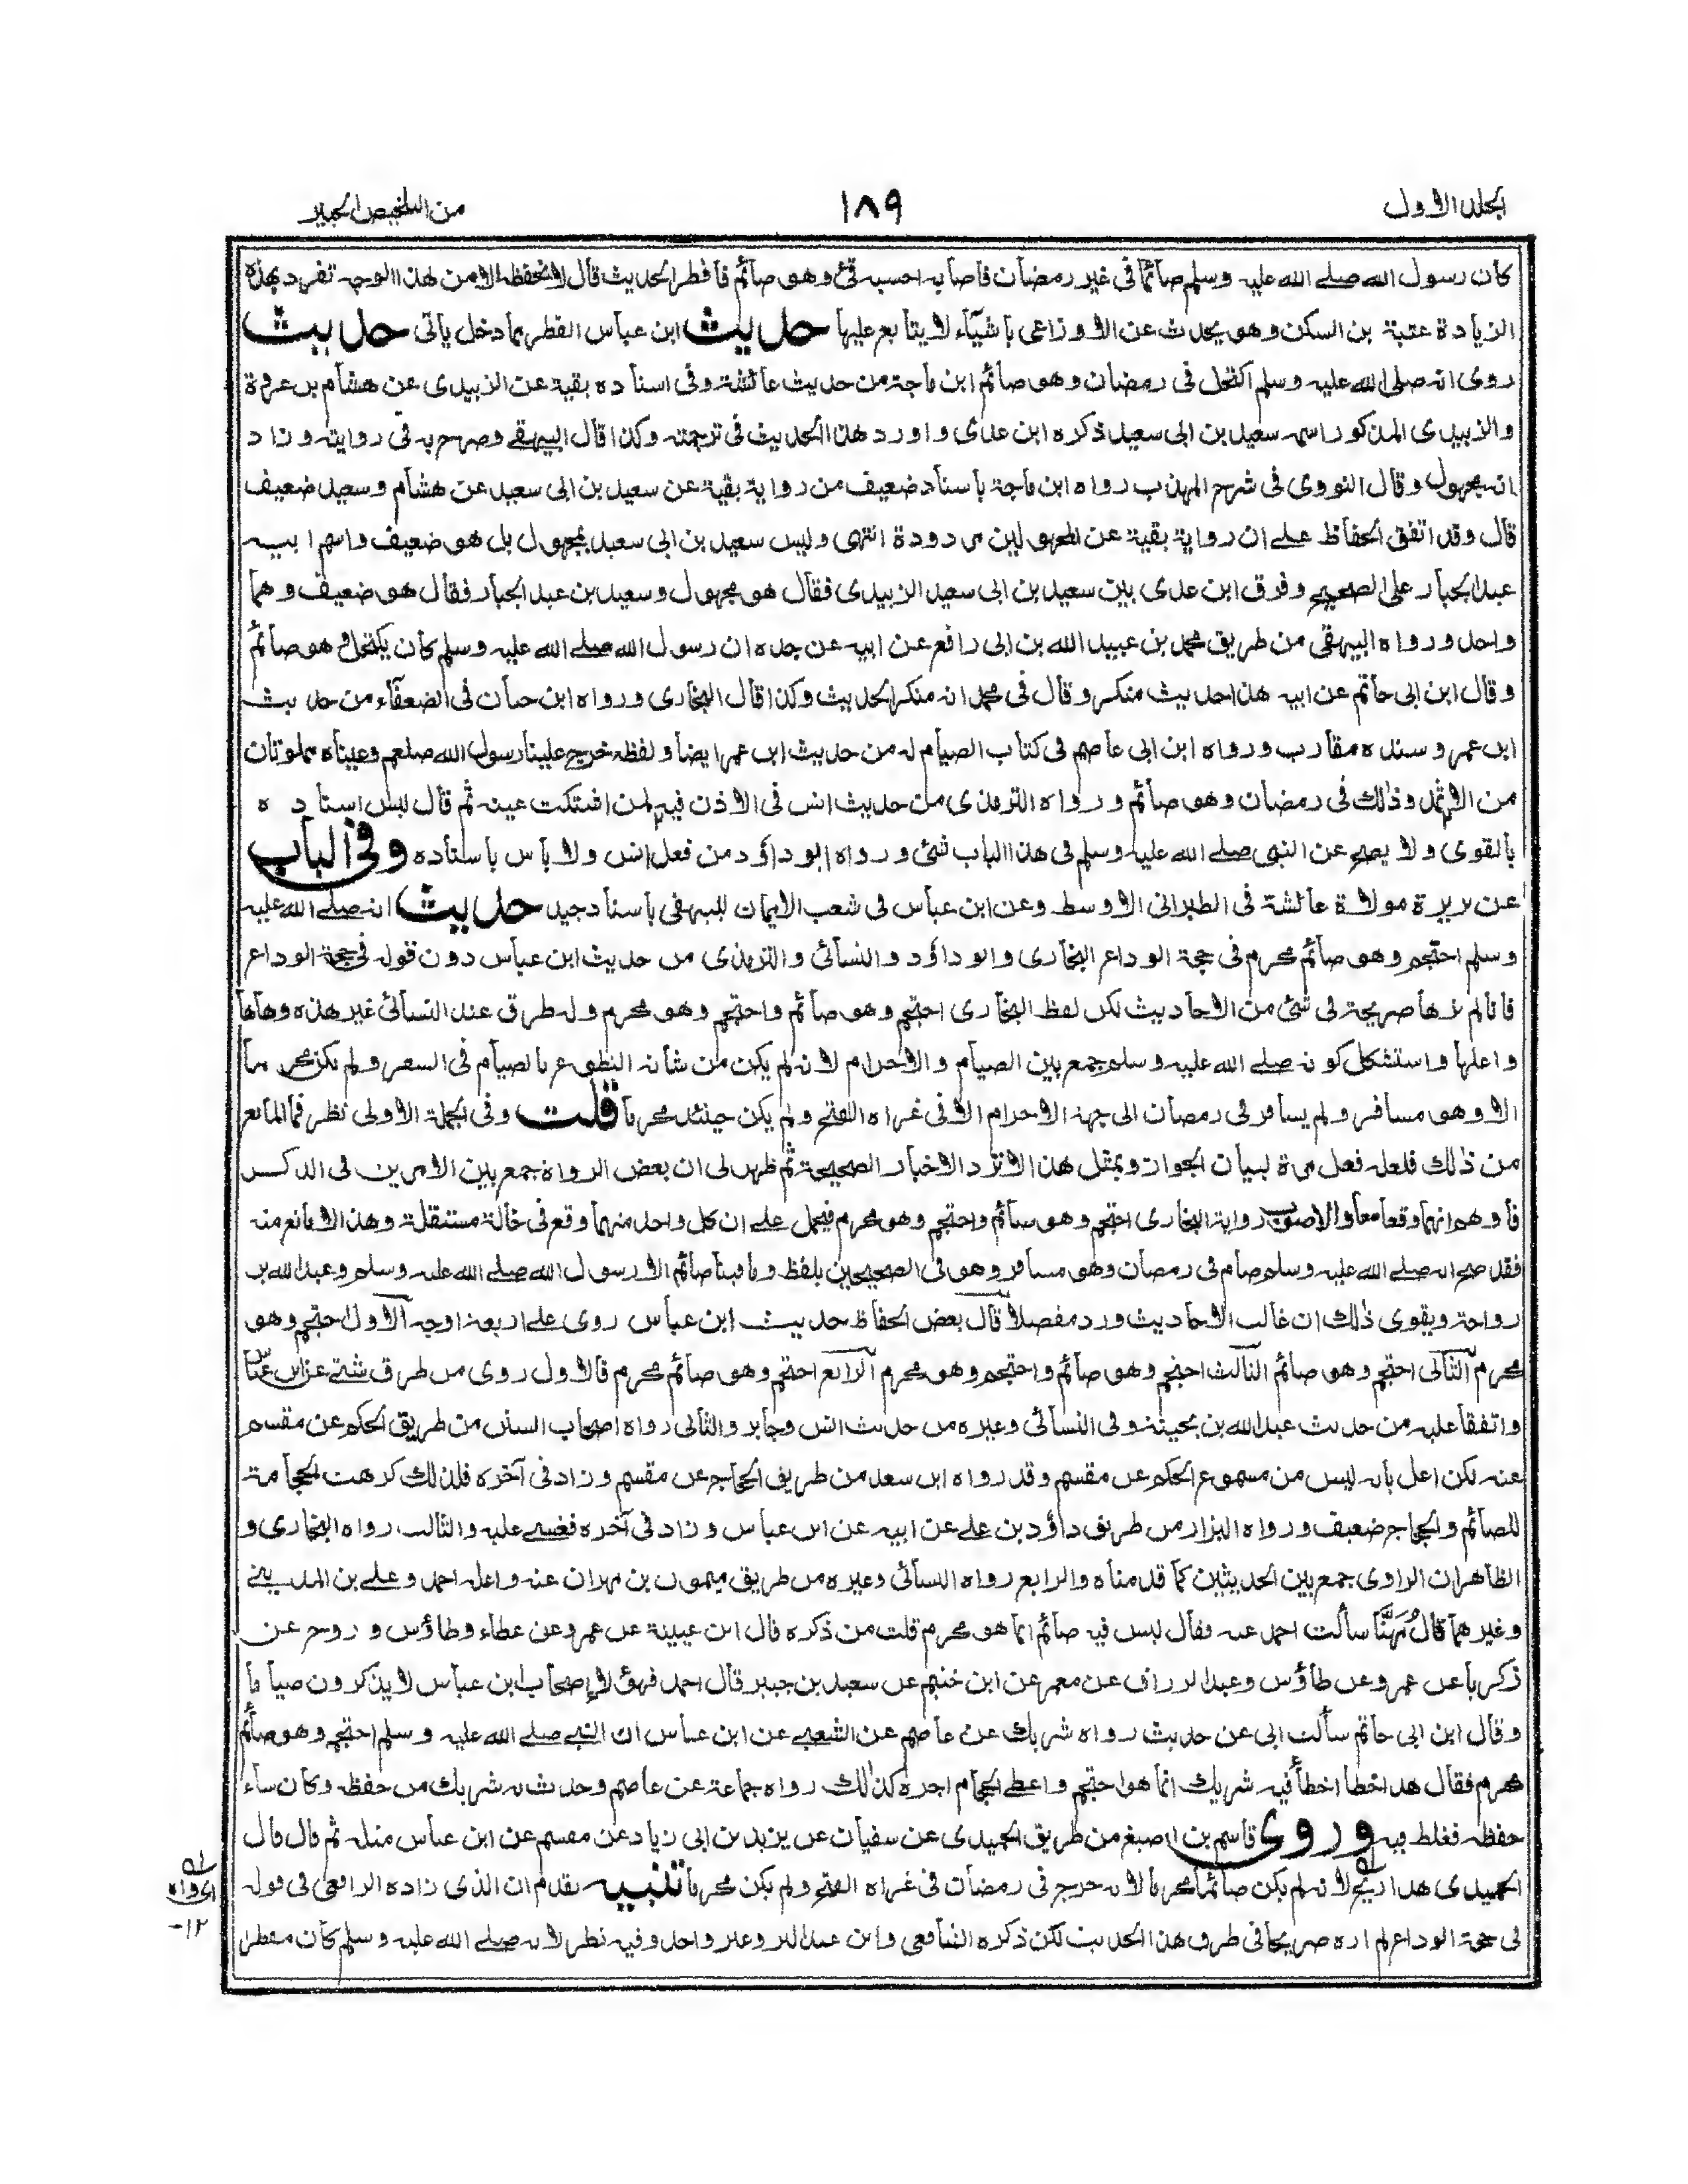 الجلد الاول
١٨٩
من التلخيص الحبير
كان رسول الله صلے الله عليه وسلم صائما فى غير رمضان فاصابه احسبه قئ وهو صائم فافطر الحديث قال لا نحفظه الا من هذا الوجه تفرد بهذه
الزيادة عتبة بن السكن وهو يحدث عن الاوزاعى باشياء لا يتابع عليها حديث ابن عباس الفطر مما دخل ياتى حديث
روى انه صلى الله عليه وسلم اكتحل فى رمضان وهو صائم ابن ماجة من حديث عائشة وفى اسناده بقية عن الزبيدى عن هشام بن عروة
والزبيدى المذكور اسمه سعيد بن ابى سعيد ذكره ابن عدى واورد هذا الحديث فى ترجمته وكذا قال البيهقے وصرح به فى روايته وزاد
انه مجهول وقال النووى فى شرح المهذب رواه ابن ماجة باسناد ضعيف من رواية بقية عن سعيد بن ابى سعيد عن هشام وسعيد ضعيف
قال وقد اتفق الحفاظ علے ان رواية بقية عن المجهولين مردودة انتهى وليس سعيد بن ابى سعيد بمجهول بل هو ضعيف واسم ابيه
عبد الجبار على الصحيح وفرق ابن عدى بين سعيد بن ابى سعيد الزبيدى فقال هو مجهول وسعيد بن عبد الجبار فقال هو ضعيف وهما
واحد ورواه البيهقى من طريق محمد بن عبيد الله بن ابى رافع عن ابيه عن جده ان رسول الله صلے الله عليه وسلم كان يكتحل وهو صائم
وقال ابن ابى حاتم عن ابيه هذا حديث منكر وقال فى محمد انه منكر الحديث وكذا قال البخارى ورواه ابن حبان فى الضعفاء من حديث
ابن عمر وسنده مقارب ورواه ابن ابى عاصم فى كتاب الصيام له من حديث ابن عمر ايضا ولفظه خرج علينا رسول الله صلعم وعيناه مملوئتان
من الاثمد وذلك فى رمضان وهو صائم ورواه الترمذى من حديث انس فى الاذن فيه لمن اشتكت عينه ثم قال ليس اسناده
بالقوى ولا يصح عن النبى صلے الله عليه وسلم فى هذا الباب شئ ورواه ابو داؤد من فعل انس ولا باس باسناده وفى الباب
عن بريرة مولاة عائشة فى الطبرانى الاوسط وعن ابن عباس فى شعب الايمان للبيهقى باسناد جيد حديث انه صلے الله عليه
وسلم احتجم وهو صائم محرم فى حجة الوداع البخارى وابو داؤد والنسائى والترمذى من حديث ابن عباس دون قوله فى حجة الوداع
فانا لم نرها صريحة فى شئ من الاحاديث لكن لفظ البخارى احتجم وهو صائم واحتجم وهو محرم وله طرق عند النسائى غير هذه وهاها
واعلها واستشكل كونه صلے الله عليه وسلم جمع بين الصيام والاحرام لانه لم يكن من شانه التطوع بالصيام فى السفر ولم يكن محرما
الا وهو مسافر ولم يسافر فى رمضان الى جهة الاحرام الا فى غزاه الفتح ولم يكن حينئذ محرما قلت وفى الجملة الاولى نظر فما المانع
من ذلك فلعله فعل مرة لبيان الجواز وبمثل هذا لا ترد الاخبار الصحيحة ثم ظهر لى ان بعض الرواة جمع بين الامرين فى الذكر
فاوهم انهما وقعا معا والاصوب رواية البخارى احتجم وهو صائم واحتجم وهو محرم فيحمل علے ان كل واحد منهما وقع فى حالة مستقلة وهذا لا مانع منه
فقد صح انه صلے الله عليه وسلم صام فى رمضان وهو مسافر وهو فى الصحيحين بلفظ وما فينا صائم الا رسول الله صلے الله عليه وسلم وعبد الله بن
رواحة ويقوى ذلك ان غالب الاحاديث ورد مفصلا قال بعض الحفاظ حديث ابن عباس روى علے اربعة اوجه الاول احتجم وهو
محرم الثانى احتجم وهو صائم الثالث احتجم وهو صائم واحتجم وهو محرم الرابع احتجم وهو صائم محرم فالاول روى من طرق شتے عن ابن عباس
واتفقا عليه من حديث عبد الله بن بحينة وفى النسائى وغيره من حديث انس وجابر والثانى رواه اصحاب السنن من طريق الحكم عن مقسم
عنه لكن اعل بانه ليس من مسموع الحكم عن مقسم وقد رواه ابن سعد من طريق الحجاج عن مقسم وزاد فى آخره فلذلك كرهت الحجامة
للصائم والحجاج ضعيف ورواه البزار من طريق داؤد بن علے عن ابيه عن ابن عباس وزاد فى آخره فغسے عليه والثالث رواه البخارى و
الظاهر ان الراوى جمع بين الحديثين كما قدمناه والرابع رواه النسائى وغيره من طريق ميمون بن مهران عنه واعله احمد وعلے بن المدينے
وغيرهما قال مُهَنَّا سألت احمد عنه فقال ليس فيه صائم انما هو محرم قلت من ذكره قال ابن عيينة عن عمرو عن عطاء وطاؤس وروح عن
ذكريا عن عمرو عن طاؤس وعبد الرزاق عن معمر عن ابن خثيم عن سعيد بن جبير قال احمد فهؤلاء اصحاب ابن عباس لا يذكرون صياما
وقال ابن ابى حاتم سألت ابى عن حديث رواه شريك عن عاصم عن الشعبے عن ابن عباس ان النبے صلے الله عليه وسلم احتجم وهو صائم
محرم فقال هذا خطا اخطأ فيه شريك انما هو احتجم واعطے الحجام اجره كذلك رواه جماعة عن عاصم وحدث به شريك من حفظه وكان ساء
حفظه فغلط فيه وروى قاسم بن اصبغ من طريق الحميدى عن سفيان عن يزيد بن ابى زياد عن مقسم عن ابن عباس مثله ثم قال قال
الحميدى هذا ريح لانه لم يكن صائما محرما لانه خرج فى رمضان فى غزاه الفتح ولم يكن محرما تنبيه تقدم ان الذى زاده الرافعى فى قوله
فى حجة الوداع لم اره صريحا فى طرق هذا الحديث لكن ذكره الشافعى وابن عبد البر وغير واحد وفيه نظر لانه صلے الله عليه وسلم كان مفطرا
١٢-